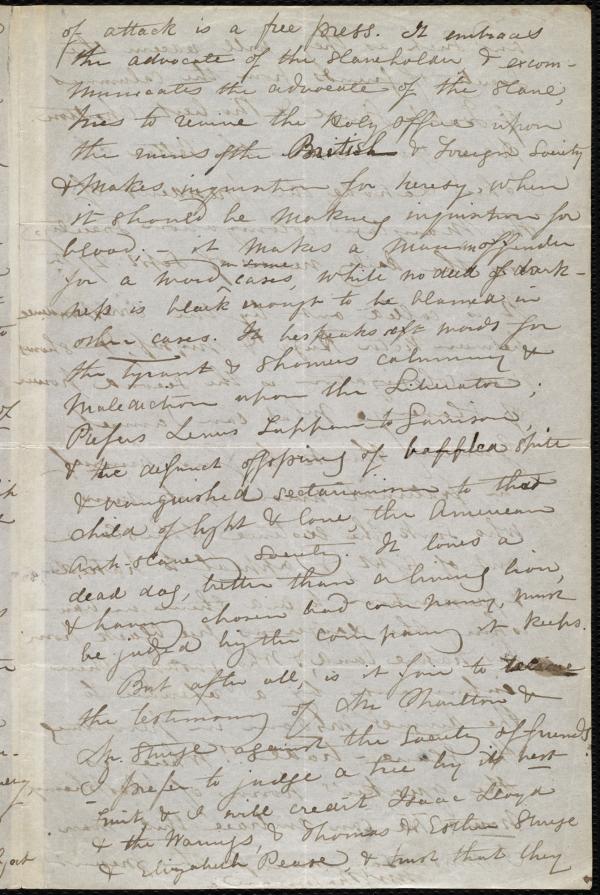 of attack is a free press. It embraces
the advocate of the slaveholder, & excom-
municates the advocate of the slave,
tries to revive the Holy Office upon
the ruins of the British & Foreign Society
& makes inquisition for heresy, when
it should be making inquisition for
blood; - it makes a man an offender
for a word in some cases, while no deed of dark-
ness is black enough to be blamed in
other cases. It bespeaks soft words for
the tyrant & showers calumny &
malediction upon the Liberator;
Prefers Lewis Tappan to Garrison,
& the defunct offspring of baffled spite
& vanquished sectarianism to that
child of light & love, the American
Anti-slavery Society. It loves a
dead dog, better than a living lion,
& having chosen bad company, must
be judged by the company it keeps.
But after all, is it fair to
the testimony of Mr Moulton &
Mr. Sturge against the Society of friends
I prefer to judge a tree by its best
fruit & I will credit Isaac Lloyd
& the Warings, & Thomas & Esther Sturge
& Elizabeth Pease, & trust that they